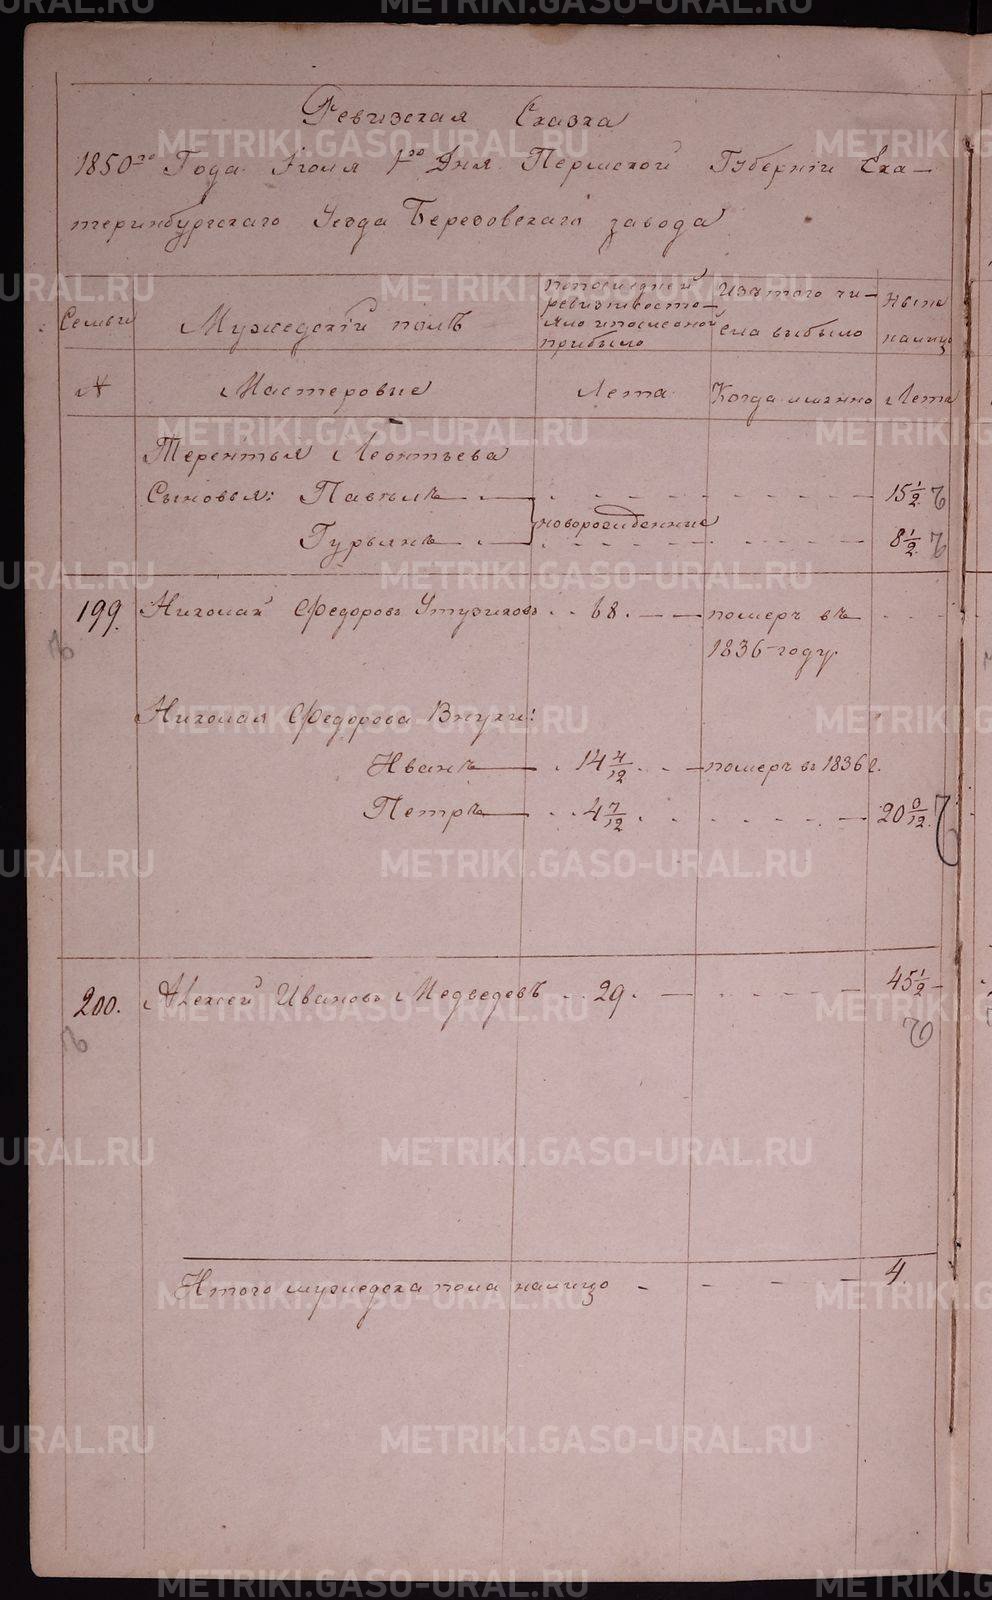 Ревизская Сказка
1850го Года Іюля 1го Дня Пермской Губерніи Ека–
теринбургскаго Уезда Березовскаго завода
Семьи
Мужедскій полъ
попоследней
ревизиивосто–
яло ипослеоной
прибыло
Изътого чи–
сла выбыло
Ныне
налицо
№
Мастеровые
Лета
Когда имянно
Лета
Терентья Леонтьева
Сыновья: Павелъ 15 1/2
новорожденные
Гурьянъ 8 1/2
199. Николай Федоровъ 68. померъ въ
1836 году.
Николая Федорова Внуки:
Иванъ 14 4/12 померъ въ 1836 г.
Петръ 4 7/12 20 0/12
200. Алексей Ивановъ Медведевъ 29. 45 1/2
Итого мужедска пола налицо 4.
METRIKI.GASO-URAL.RU